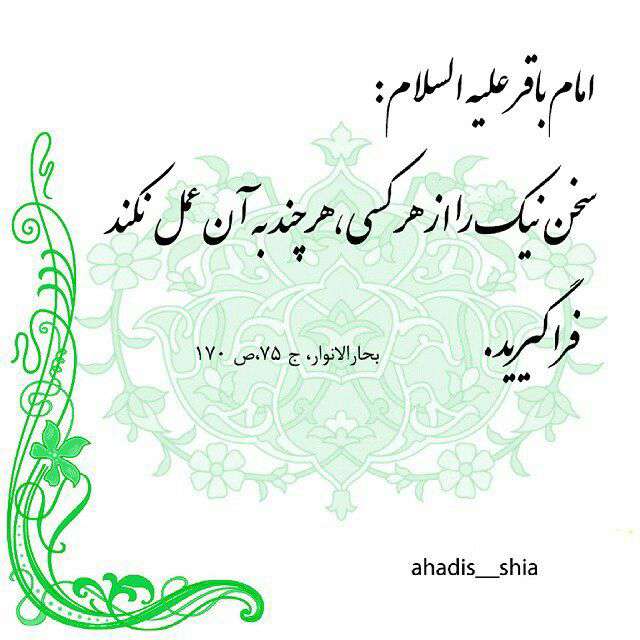 امام باقر علیه السلام:
سخن نیک را از هر کسی، هر چند به آن عمل نکند
فرا گیرید.
بحارالانوار، ج ۷۵،ص ۱۷۰
ahadis__shia